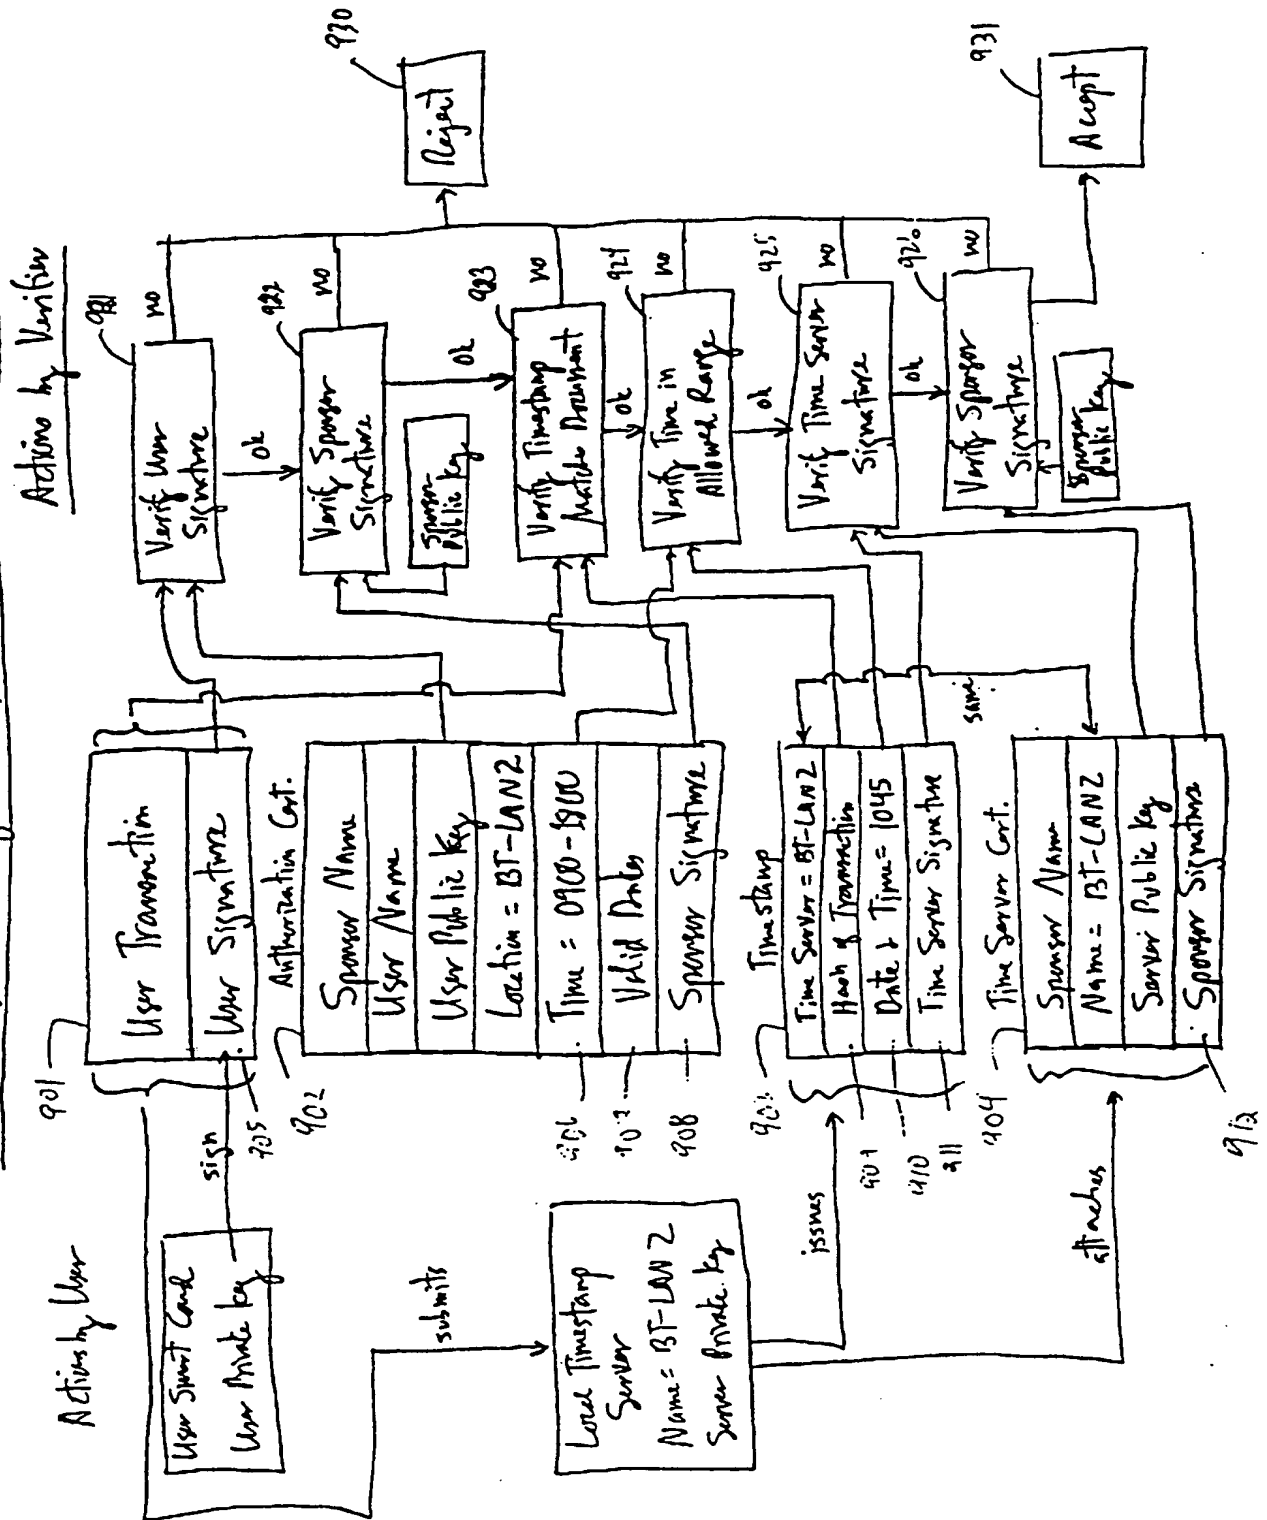 Actions by User
User Smart Card
User Private Key
sign
submits
Local Timestamp
Server
Name = BT-LAN2
Server Private Key
issues
attaches
901
User Transaction
User Signature
902
Authorization Cert.
Sponsor Name
User Name
User Public Key
Location = BT-LAN2
Time = 0900-1800
Valid Dates
Sponsor Signature
908
Timestamp
Time Server = BT-LAN2
Hash of Transaction
Date & Time = 1045
Time Server Signature
910
904
Time Server Cert.
Sponsor Name
Name = BT-LAN2
Server Public Key
Sponsor Signature
912
same
Actions by Verifier
Verify User
Signature
no
ok
922
Verify Sponsor
Signature
no
Sponsor
Public Key
ok
923
Verify Timestamp
Matches Document
no
ok
924
Verify Time in
Allowed Range
no
ok
925
Verify Time Server
Signature
no
ok
926
Verify Sponsor
Signature
no
Sponsor
Public Key
930
Reject
931
Accept